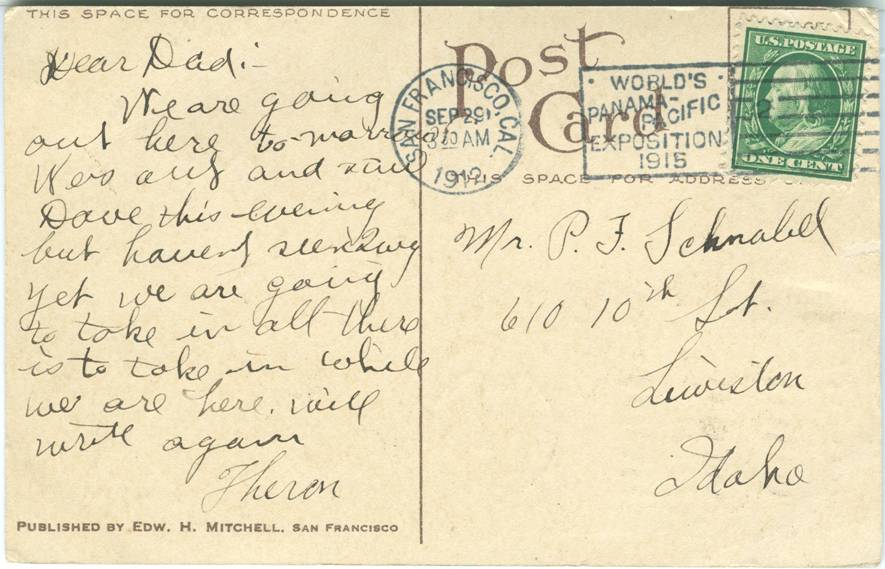 THIS SPACE FOR CORRESPONDENCE
Dear Dad:-
We are going
out here to-morrow
Was out and saw
Dave this evening
but havent seen
yet we are going
to take in all there
is to take in while
we are here. will
write again
Theron
PUBLISHED BY EDW. H. MITCHELL, SAN FRANCISCO
Post
Card
SAN FRANCISCO, CAL.
SEP 29
3 30 AM
1912
WORLD'S
PANAMA-
PACIFIC
EXPOSITION
1915
2
U.S. POSTAGE
ONE CENT
THIS SPACE FOR ADDRESS
Mr. P. F. Schnabel
610 10th St.
Lewiston
Idaho